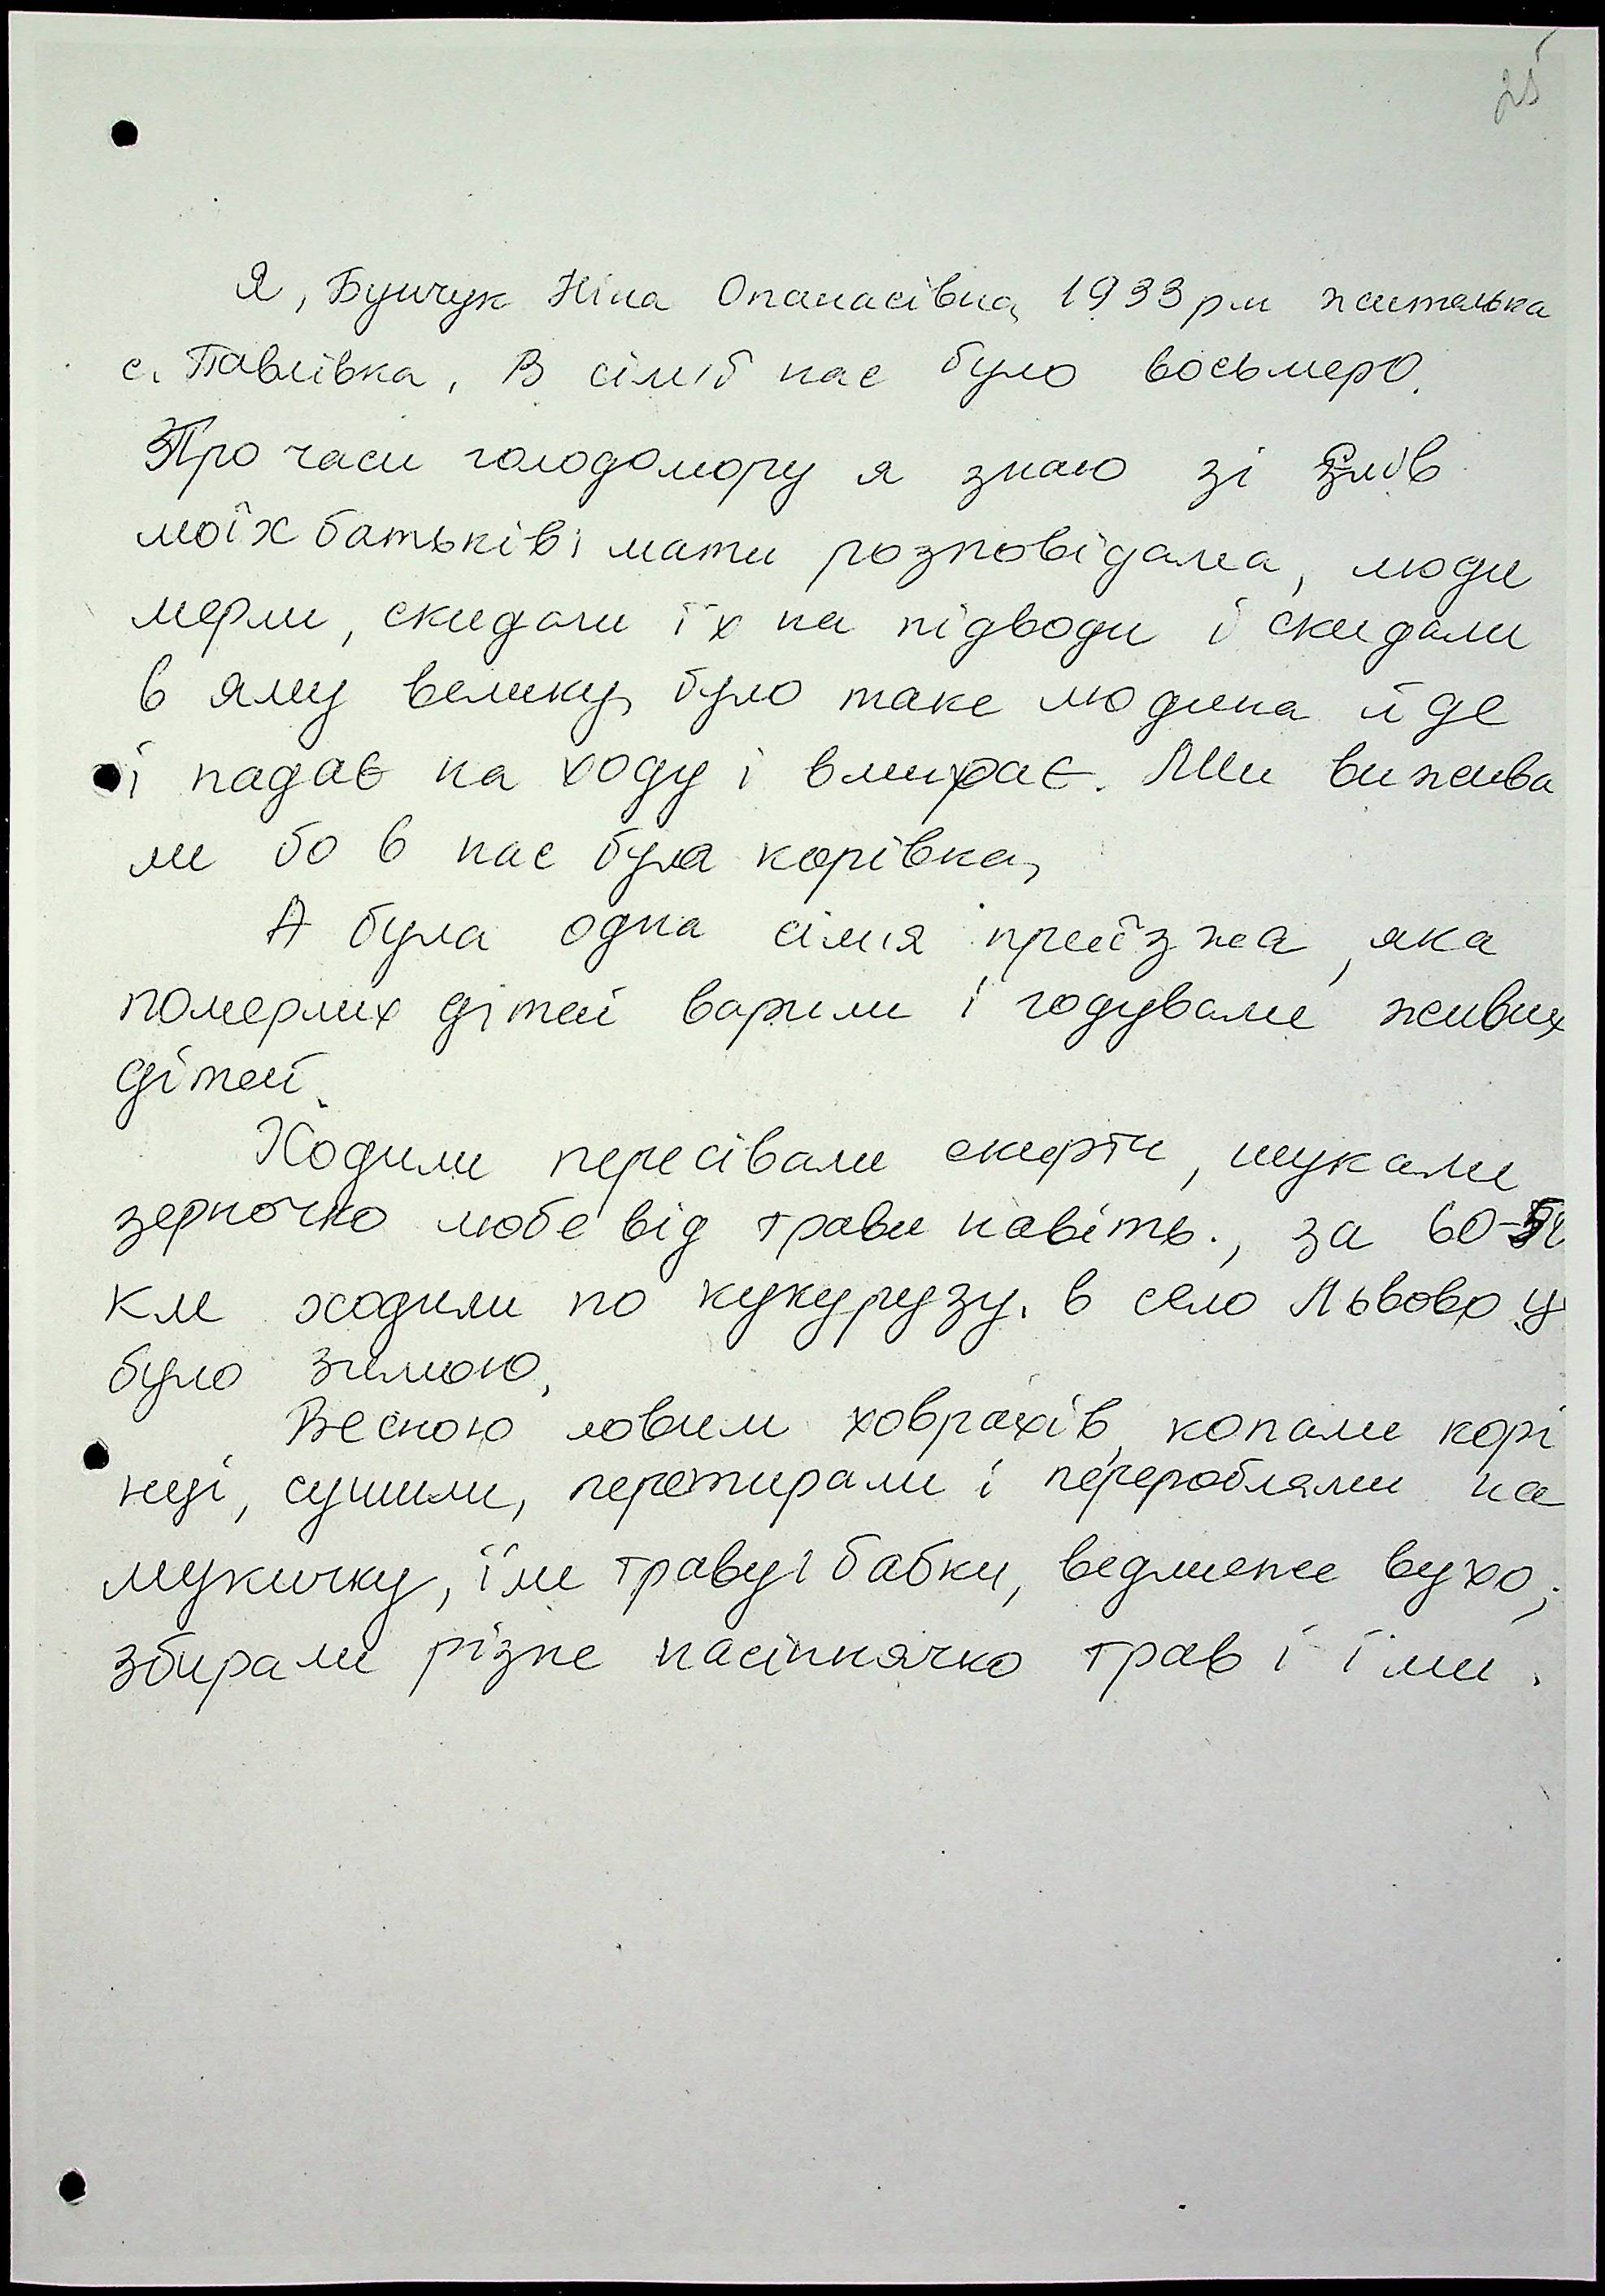 25
Я, Бунчук Ніна Опанасівна, 1933 рн жителька
с. Павлівка, В сім'ї нас було восьмеро.
Про часи голодомору я знаю зі слів
моїх батьків, мати розповідала, люди
мерли, скидали їх на підводи і скидали
в яму велику, було таке людина йде
і падає на ходу і вмирає. Ми вижива
ли бо в нас була корівка,
А була одна сім'я приїзжа, яка
померлих дітей варили і годували живих
дітей.
Ходили пересівали скирти, шукали
зерночко любе від трави навіть., за 60
км ходили по кукурузу. в село Львово у
було зимою,
Весною ловили ховрахів, копали корі
нці, сушили, перетирали і переробляли на
мукичку, їли траву: бабки, ведмеже вухо;
збирали різне насіннячко трав і їли.